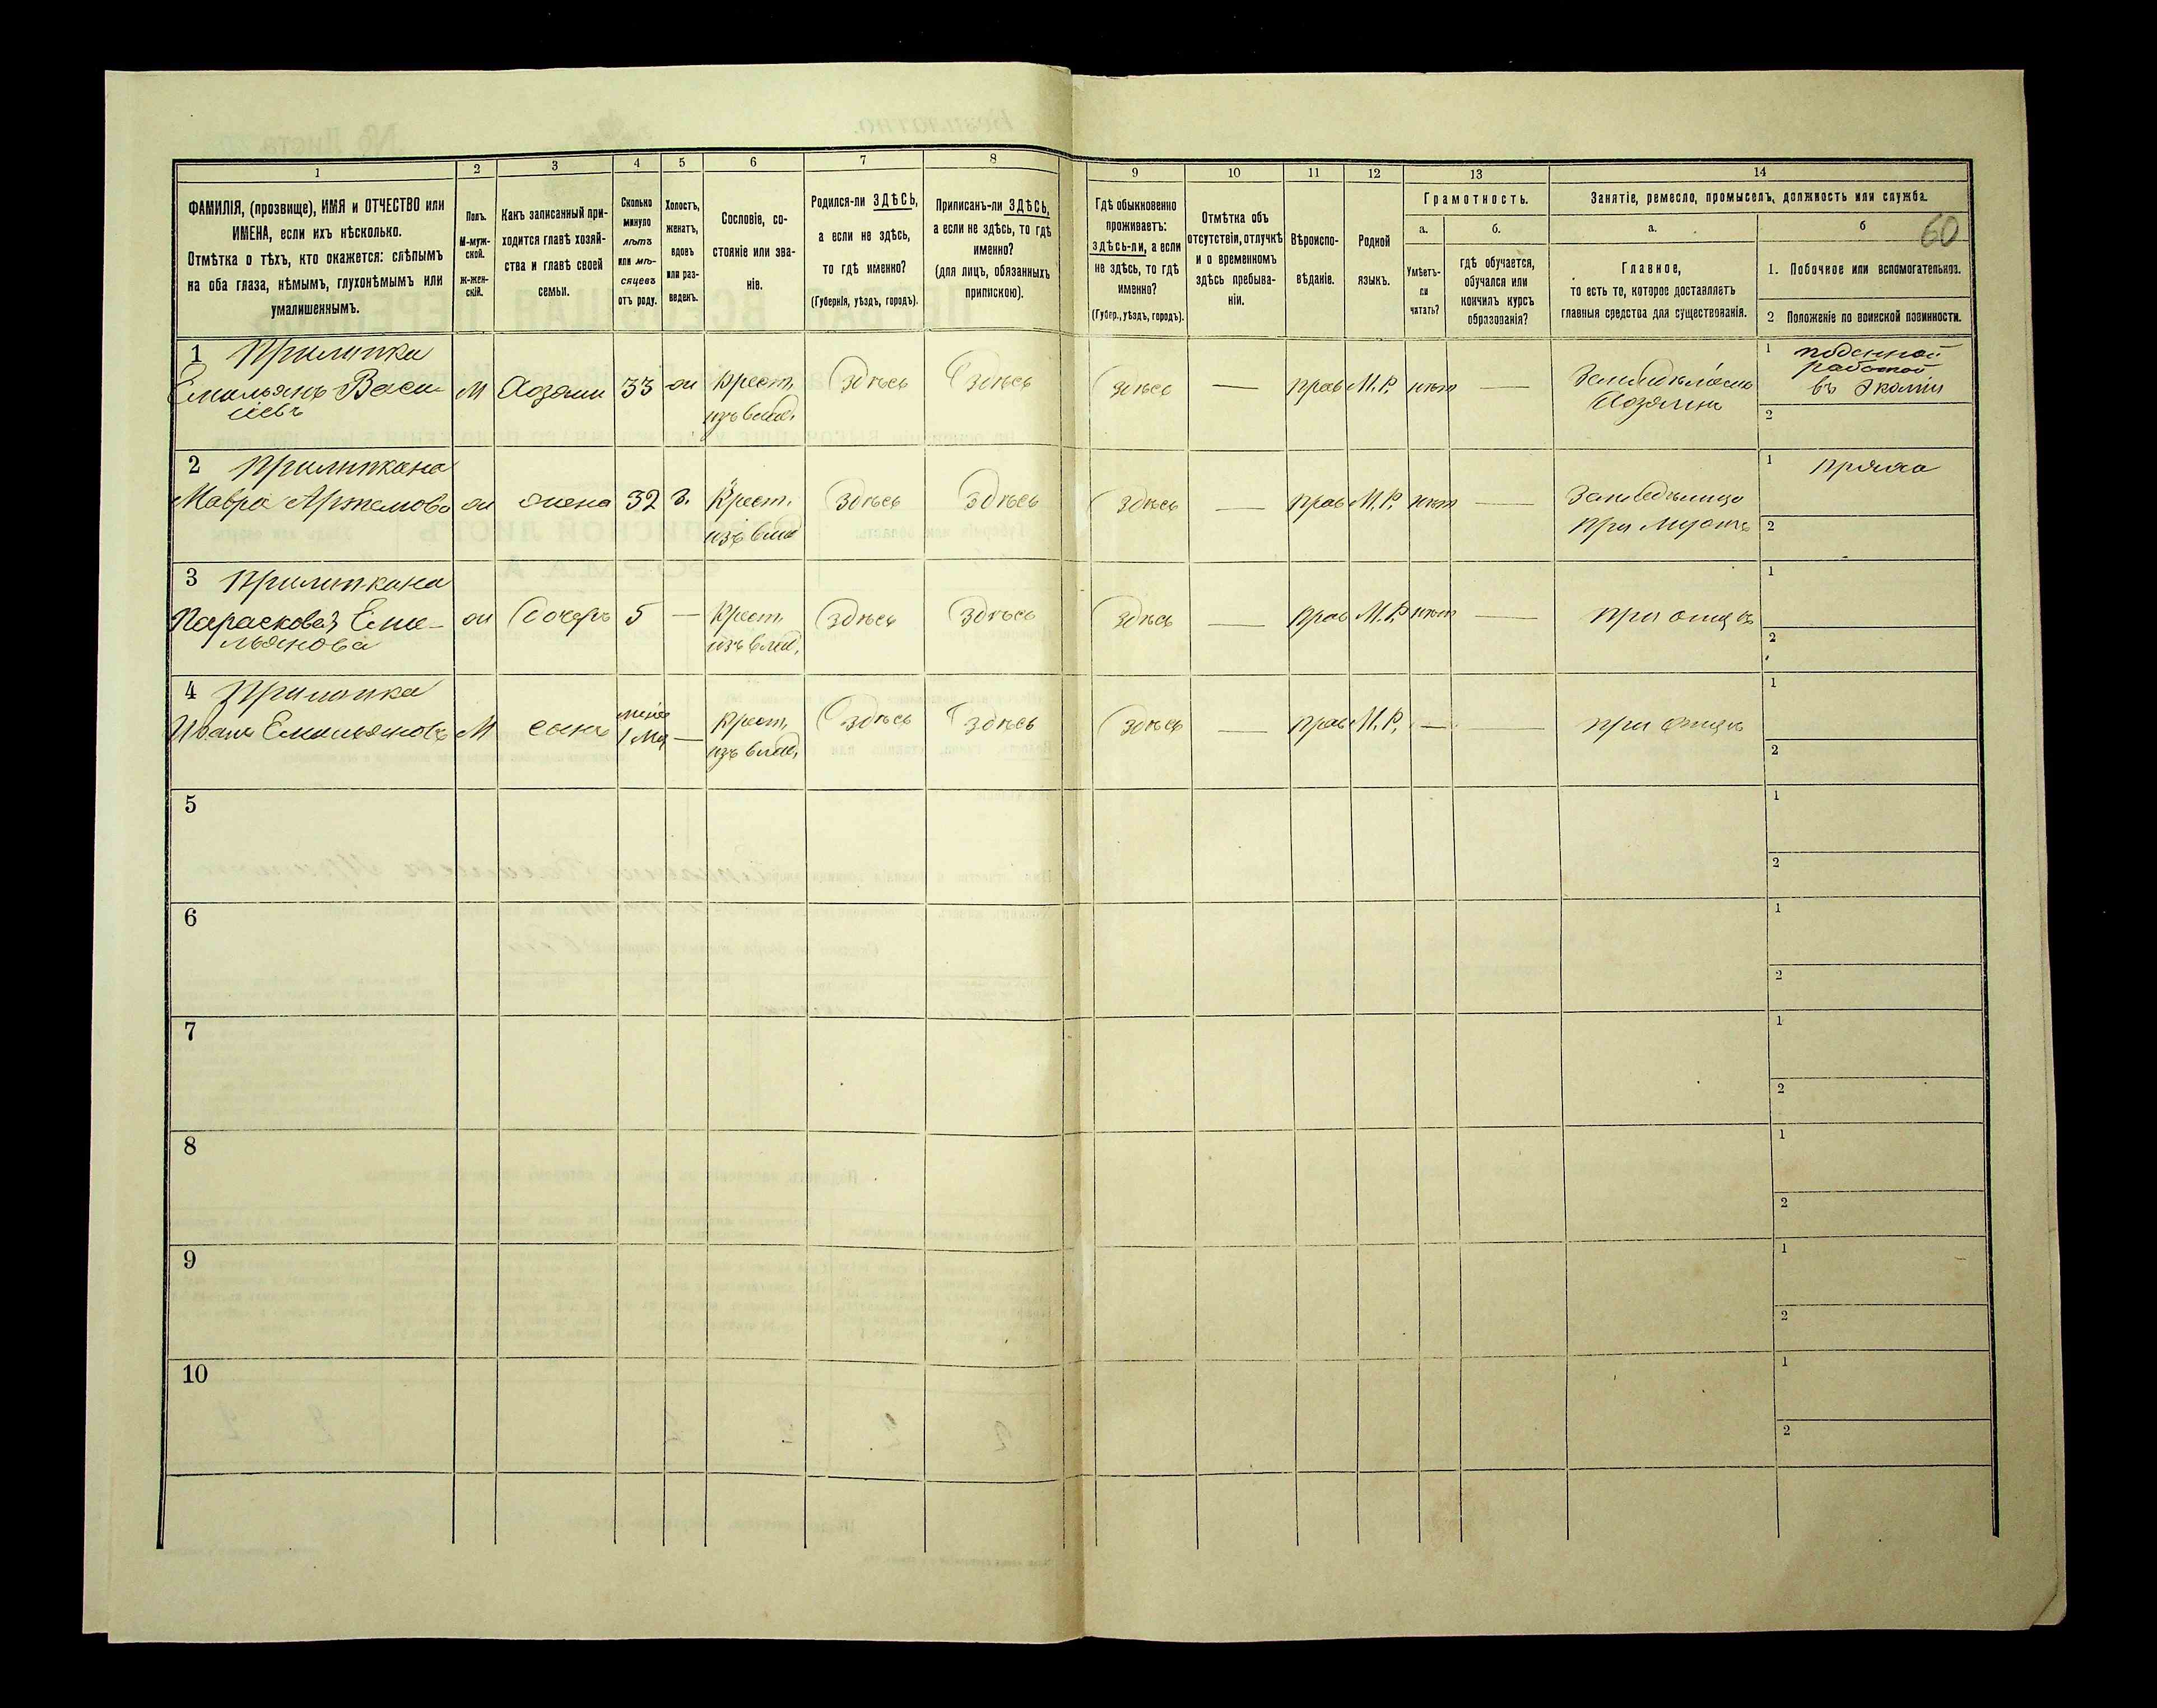 1 2 3 4 5 6 7 8 9 10 11 12 13 14
ФАМИЛІЯ, (прозвище), ИМЯ и ОТЧЕСТВО или
ИМЕНА, если ихъ нѣсколько.
Отмѣтка о тѣхъ, кто окажется: слѣпымъ
на оба глаза, нѣмымъ, глухонѣмымъ или
умалишеннымъ.
Полъ.
М-муж-
ской.
ж-жен-
скій.
Какъ записанный при-
ходится главѣ хозяй-
ства и главѣ своей
семьи.
Сколько
минуло
лѣтъ
или мѣ-
сяцевъ
отъ роду.
Холостъ,
женатъ,
вдовъ
или раз-
веденъ.
Сословіе, со-
стояніе или зва-
ніе.
Родился-ли ЗДѢСЬ,
а если не здѣсь,
то гдѣ именно?
(Губернія, уѣздъ, городъ).
Приписанъ-ли ЗДѢСЬ,
а если не здѣсь, то гдѣ
именно?
(для лицъ, обязанныхъ
припискою).
Гдѣ обыкновенно
проживаетъ:
здѣсь-ли, а если
не здѣсь, то гдѣ
именно?
(Губер., уѣздъ, городъ).
Отмѣтка объ
отсутствіи, отлучкѣ
и о временномъ
здѣсь пребыва-
ніи.
Вѣроиспо-
вѣданіе.
Родной
языкъ.
Грамотность.
а.
Умѣетъ-
ли
читать?
б.
гдѣ обучается,
обучался или
кончилъ курсъ
образованія?
Занятіе, ремесло, промыселъ, должность или служба.
а.
Главное,
то есть то, которое доставляетъ
главныя средства для существованія.
б 60
1. Побочное или вспомогательное.
2 Положеніе по воинской повинности.
1 Прилипка
Емельянъ Васи-
ліевъ
М Хозяин 33 ж Крест.
из влад.
здѣсь здѣсь здѣсь — прав М.Р. нѣт —
Хозяинъ
1 поденной
работой
въ Экомiи
2
2 Прилипкана
Мавра Артемова ж жена 32 з. Крест.
изъ влад
здѣсь здѣсь здѣсь — прав М.Р. нѣт —
при мужѣ
1 пряха
2
3 Прилипкана
Парасковія Еме-
льянова
ж дочерь 5 — Крест.
изъ влад.
здѣсь здѣсь здѣсь — прав М.Р. нѣт — при отцѣ
1
2
4 Прилипка
Иванъ Емельяновъ М сынъ менѣе
1 мѣс — Крест.
изъ влад.
здѣсь здѣсь здѣсь — прав М.Р. — — при отцѣ
1
2
5 1
2
6 1
2
7 1
2
8 1
2
9 1
2
10 1
2